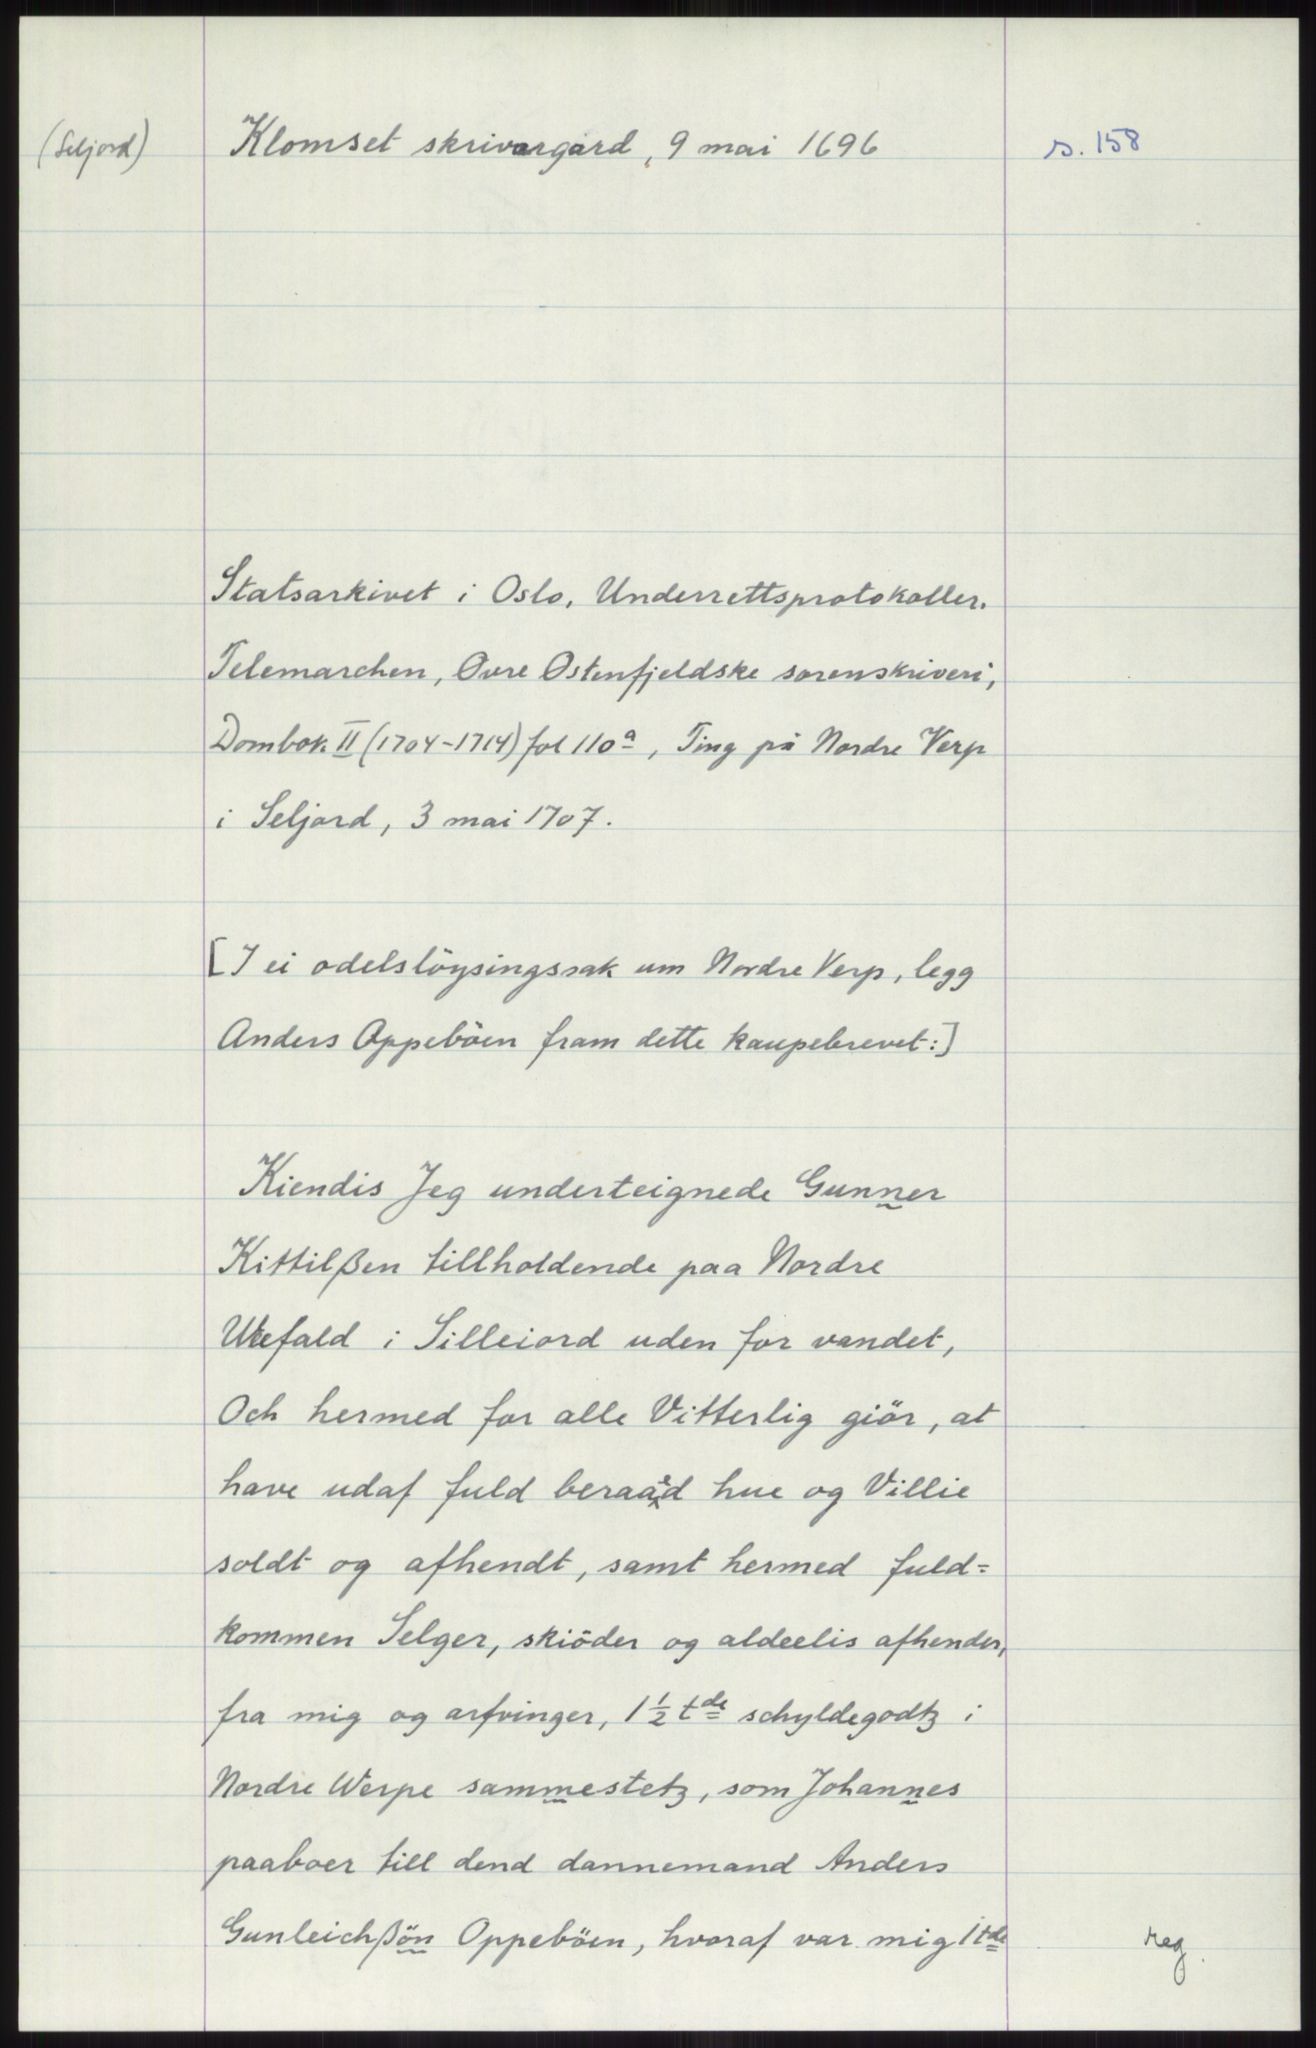 (Seljord) Klomset skrivargard, 9 mai 1696 s. 158
Statsarkivet i Oslo, Underrettsprotokoller.
Telemarchen, Øvre Østenfjeldske sorenskriveri,
Dombok II (1704-1714) fol 110a, Ting på Nordre Verp
i Seljord, 3 mai 1707.
[I ei odelslöysingssak um Nordre Verp, legg
Anders Oppeböen fram dette kaupebrevet:]
Kiendis Jeg underteignede Gunner
Kittilßen tillholdende paa Nordre
Wefald i Silleiord uden for vandet,
Och hermed for alle Vitterlig giör, at
have udaf fuld beraad hue og Villie
soldt og afhendt, samt hermed fuld=
kommen Selger, skiöder og aldeelis afhender,
fra mig og arfvinger, 1 1/2 tde schyldegodtz i
Nordre Werpe sammestetz, som Johannes
paaboer till dend dannemand Anders
Gunleichßön Oppeböen, hvoraf var mig 1 tde
reg.